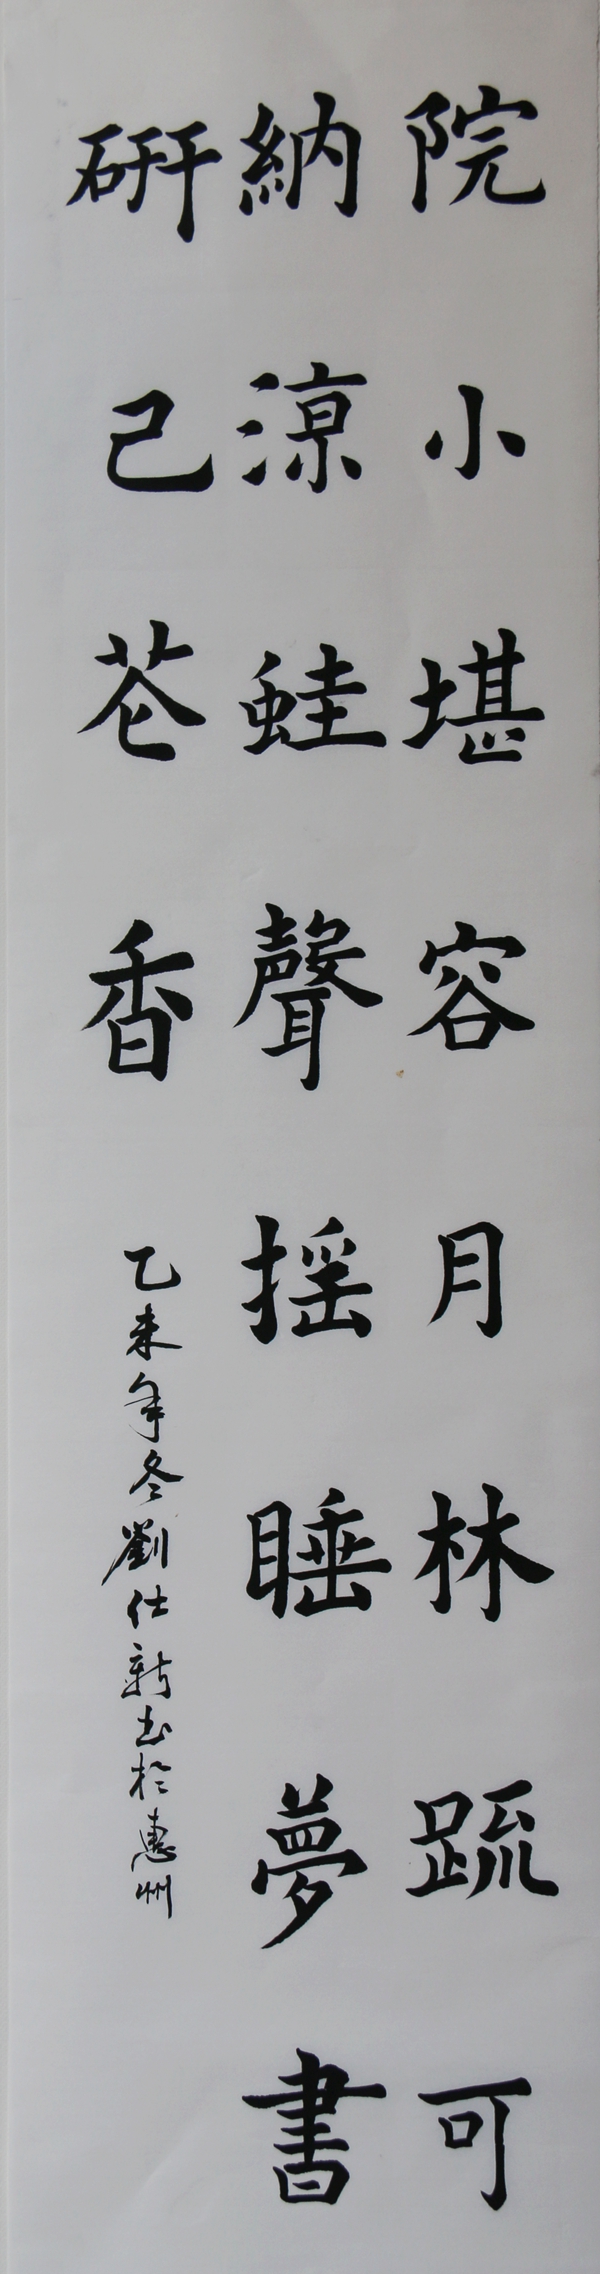 院小堪容月林疏可
納涼蛙聲摇睡夢書
研已芲香
乙未年冬劉仕新书於惠州